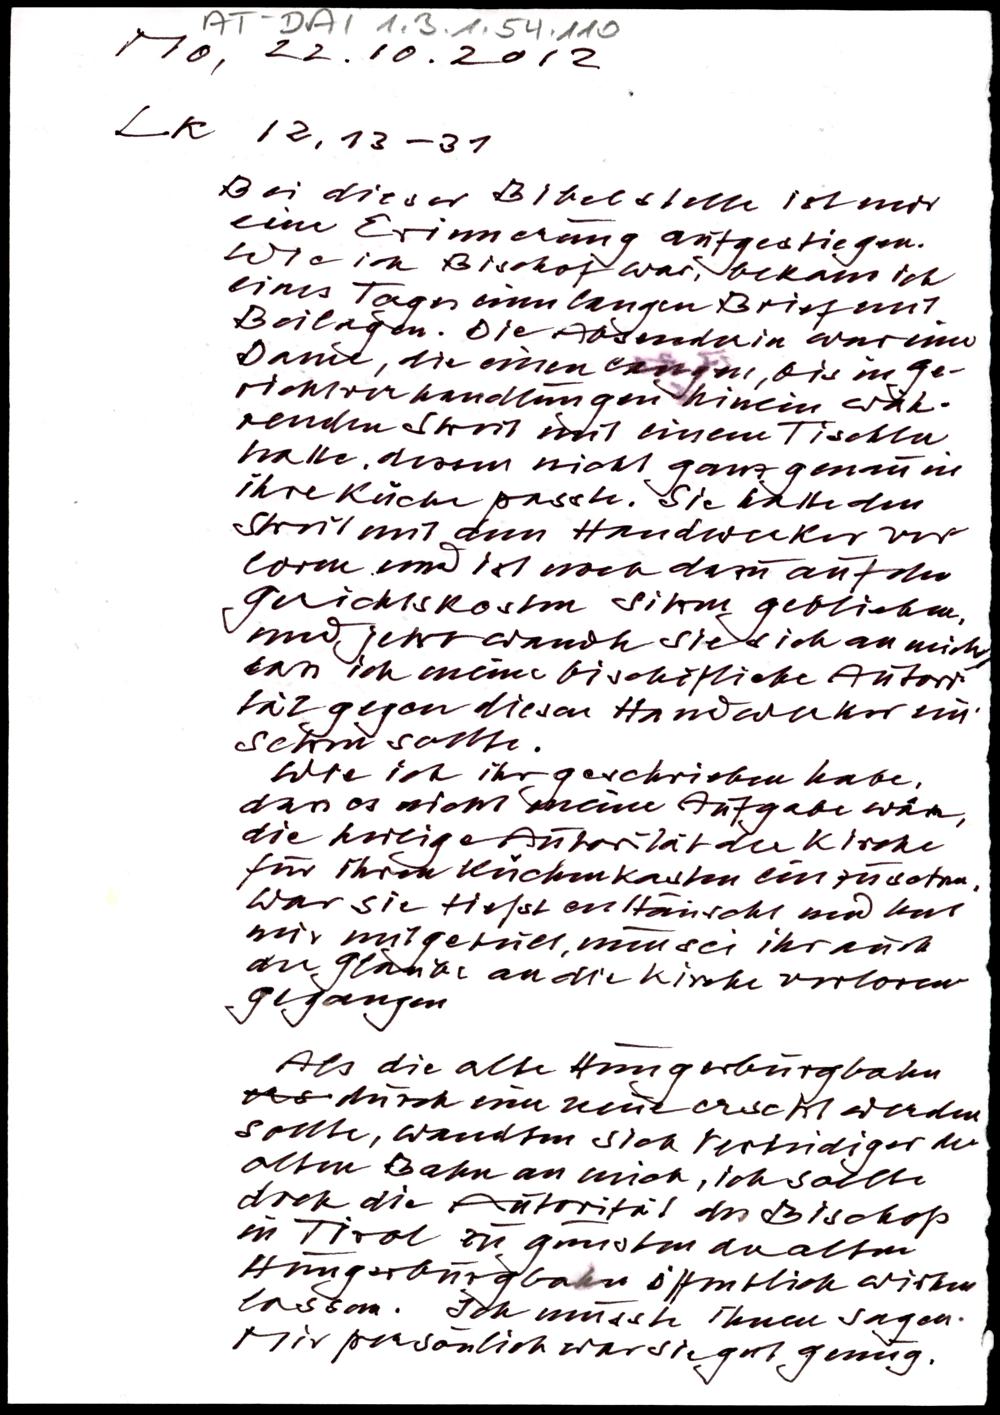 AT-DAI 1.3.1.54.110
Mo, 22.10.2012
Lk 12, 13-31
Bei dieser Bibelstelle ist mir
eine Erinnerung aufgestiegen.
Wie ich Bischof war, bekam ich
eines Tages einen langen Brief mit
Beilagen. Die Absenderin war eine
Dame, die einen langen, bis in Ge-
richtsverhandlungen hinein wäh-
renden Streit mit einem Tischler
hatte, dessen nicht ganz genau in
ihre Küche passte. Sie hatte den
Streit mit dem Handwerker ver
loren und ist noch dazu auf den
Gerichtskosten sitzen geblieben,
und jetzt wandte sie sich an mich,
dass ich meine bischöfliche Autori
tät gegen diesen Handwerker ein
setzen sollte.
Wie ich ihr geschrieben habe,
dass es nicht meine Aufgabe wäre,
die heilige Autorität der Kirche
für ihren Küchenkasten einzusetzen,
war sie tiefst enttäuscht und hat
mir mitgeteilt, nun sei ihr auch
der Glaube an die Kirche verloren
gegangen
Als die alte Hungerburgbahn
durch eine neue ersetzt werden
sollte, wandten sich Verteidiger der
alten Bahn an mich, ich sollte
doch die Autorität des Bischofs
in Tirol zu gunsten der alten
Hungerburgbahn öffentlich wirken
lassen. Ich musste ihnen sagen.
Mir persönlich war sie gut genug.